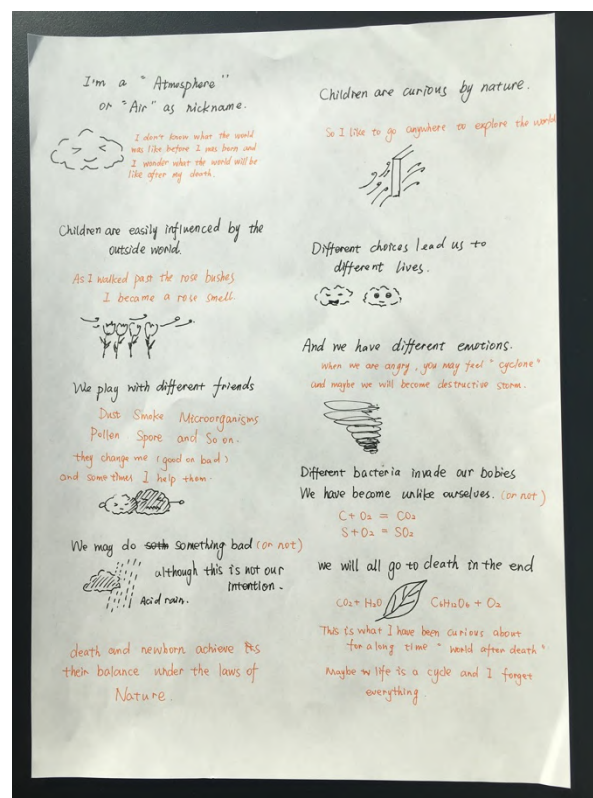 I'm a "Atmosphere"
or "Air" as nickname.
I don't know what the world
was like before I was born and
I wonder what the world will be
like after my death.
Children are easily influenced by the
outside world.
As I walked past the rose bushes
I became a rose smell.
We play with different friends
Dust Smoke Microorganisms
Pollen Spore and So on.
they change me (good or bad)
and sometimes I help them.
We may do something bad (or not)
although this is not our
intention.
Acid rain.
death and newborn achieve
their balance under the laws of
Nature.
Children are curious by nature.
So I like to go anywhere to explore the world
Different choices lead us to
different lives.
And we have different emotions.
When we are angry, you may feel "cyclone"
and maybe we will become destructive storm.
Different bacteria invade our bobies
We have become unlike ourselves. (or not)
C + O₂ = CO₂
S + O₂ = SO₂
we will all go to death in the end
CO₂ + H₂O C₆H₁₂O₆ + O₂
This is what I have been curious about
for a long time "world after death"
Maybe life is a cycle and I forget
everything.